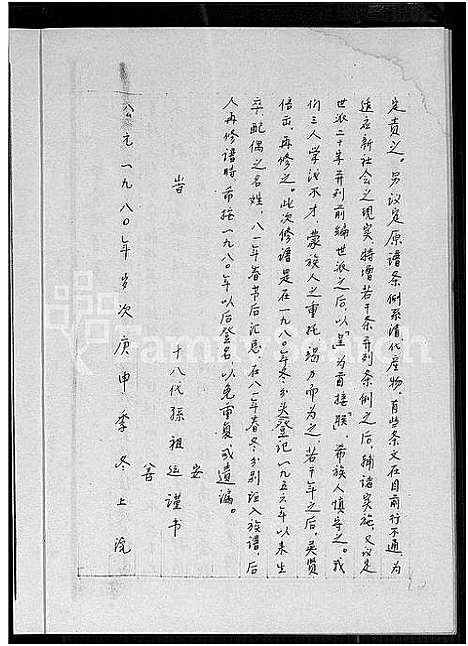 定责之。另议定原谱条例系清代产物，有些条文在目前行不通，为
适应新社会之现实，特增若干条并列条例之后，辅诸实施，又议定
世派二十字，并列前编世派之后，以"呈"为首接"联"，希族人慎守之。我
们三人学浅不才，蒙族人之重托竭力而为之，若干年之后，英贤
倍出，再修之。此次修谱是在一九八〇年冬分头登记一九五六年以来生
卒、配偶之名姓，八一年春节后汇总，在八一年春冬分别注入族谱，后
人再修谱时，希按一九八〇年以后登名，以免重复或遗漏。
峕
安
十八代孙祖 运 谨书
善
公元一九八〇年岁次庚申季冬上浣
FamilySearch